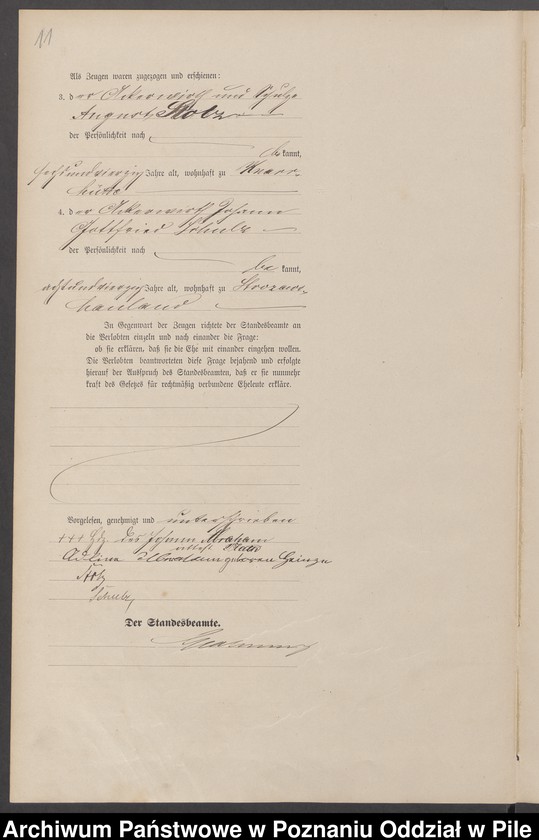 11
Als Zeugen waren zugezogen und erschienen:
3. der Ackerwirth und Schulze
August Stolz
der Persönlichkeit nach
be kannt,
sechsundvierzig Jahre alt, wohnhaft zu Knarr-
hütte
4. der Ackerwirth Johann
Gottfried Schulz
der Persönlichkeit nach
be kannt,
achtundvierzig Jahre alt, wohnhaft zu
hauland
In Gegenwart der Zeugen richtete der Standesbeamte an
die Verlobten einzeln und nach einander die Frage:
ob sie erklären, daß sie die Ehe mit einander eingehen wollen.
Die Verlobten beantworteten diese Frage bejahend und erfolgte
hierauf der Ausspruch des Standesbeamten, daß er sie nunmehr
kraft des Gesetzes für rechtmäßig verbundene Eheleute erkläre.
Vorgelesen, genehmigt und unterschrieben
+++ Hz des Johann Abraham
geboren
Stolz
Schulz
Der Standesbeamte.
Archiwum Państwowe w Poznaniu Oddział w Pile